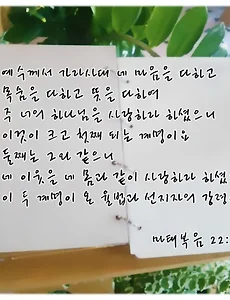 예수께서 가라사대 네 마음을 다하고
목숨을 다하고 뜻을 다하여
주 너의 하나님을 사랑하라 하셨으니
이것이 크고 첫째 되는 계명이요
둘째는 그와 같으니
네 이웃을 네 몸과 같이 사랑하라 하셨
이 두 계명이 온 율법과 선지자의 강령
마태복음 22: